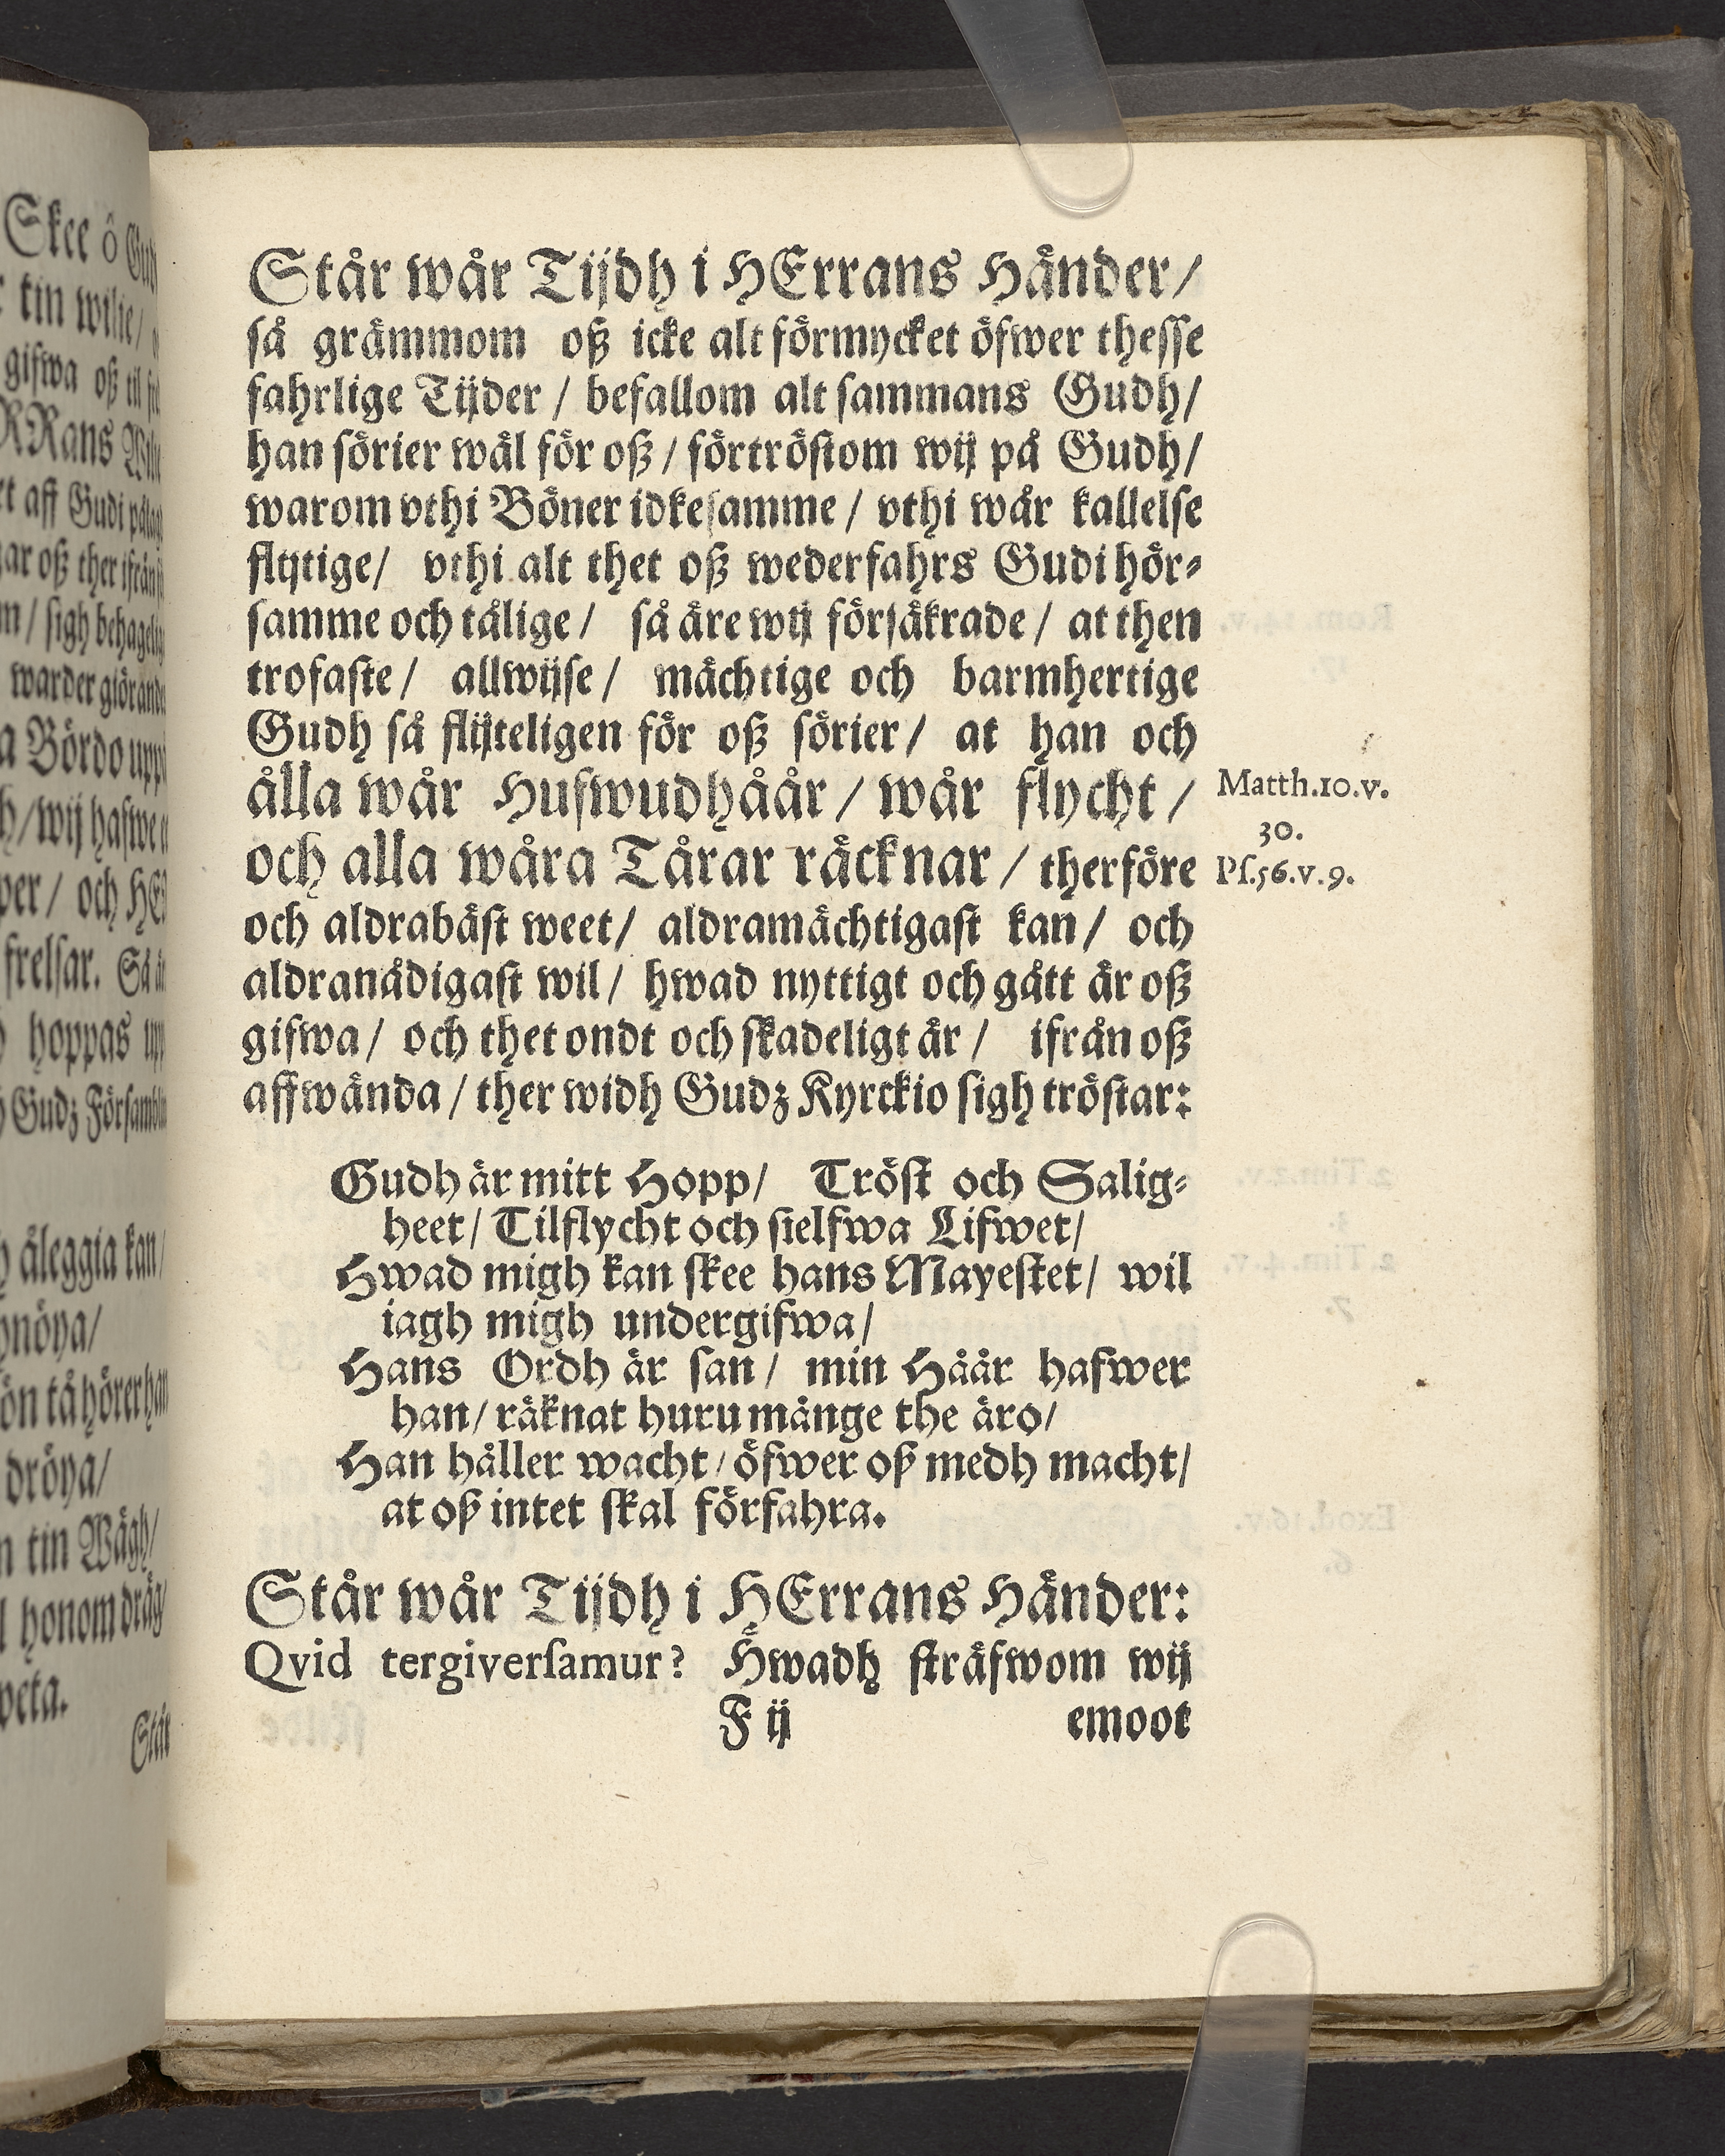 Skee ô
tin wilie/
gifwa oß til
RRans
aff Gudi
ar oß ther
/ sigh
warder
Bördo
/ wij hafwe
per/ och
frelsar.
hoppas
Gudz
åleggia kan/
nöya/
ön tå hörer
dröya/
tin Wägh/
honom
weta.
Står
Står wår Tijdh i HErrans Händer/
så grämmom oß icke alt förmycket öfwer thesse
fahrlige Tijder / befallom alt sammans Gudh/
han sörier wäl för oß / förtröstom wij på Gudh/
warom vthi Böner idkesamme / vthi wår kallelse
flijtige/ vthi alt thet oß wederfahrs Gudi hör⸗
samme och tålige / så äre wij försäkrade / at then
trofaste / allwijse / mächtige och barmhertige
Gudh så flijteligen för oß sörier / at han och
älla wår Hufwudhåår / wår flycht /
och alla wåra Tårar räcknar / therföre
och aldrabäst weet/ aldramächtigast kan / och
aldranådigast wil / hwad nyttigt och gått är oß
gifwa / och thet ondt och skadeligt är / ifrån oß
affwända / ther widh Gudz Kyrckio sigh tröstar:
Matth.10.v.
30.
Pſ.56.v.9.
Gudh är mitt Hopp/ Tröst och Salig⸗
heet/ Tilflycht och sielfwa Lifwet/
Hwad migh kan skee hans Mayestet/ wil
iagh migh undergifwa/
Hans Ordh är san/ min Håår hafwer
han/ räknat huru mänge the äro/
Han håller wacht/ öfwer oß medh macht/
at oß intet skal förfahra.
Står wår Tijdh i HErrans Händer:
Qvid tergiverſamur? Hwadh sträfwom wij
F ij
emoot